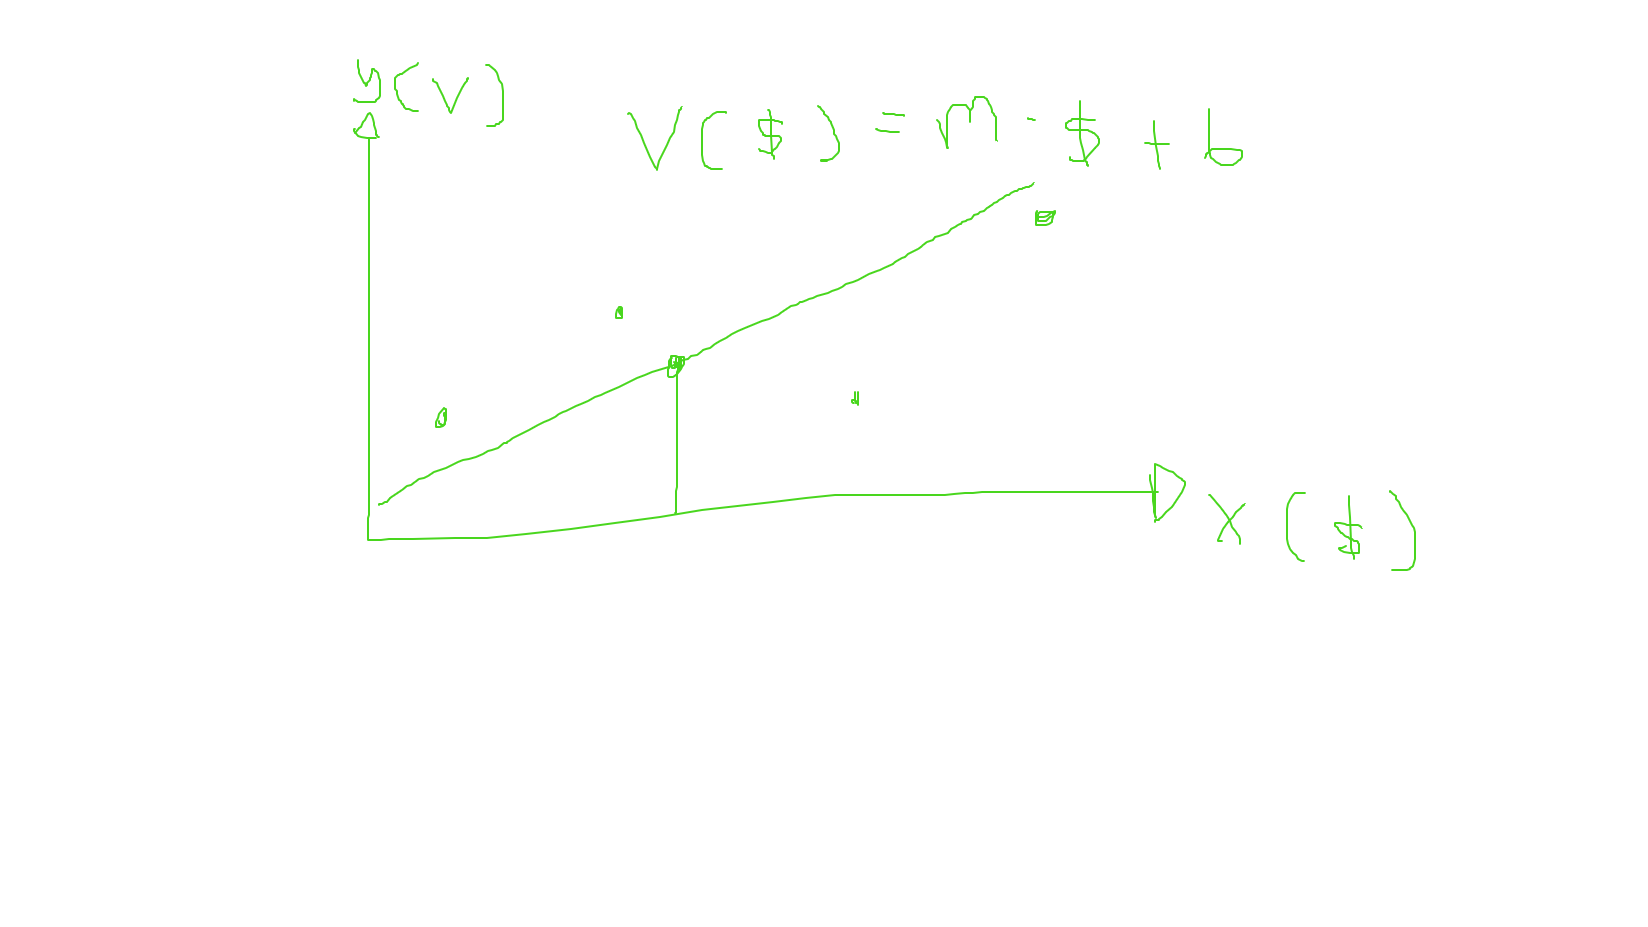 y(V)
V($) = m · $ + b
x($)